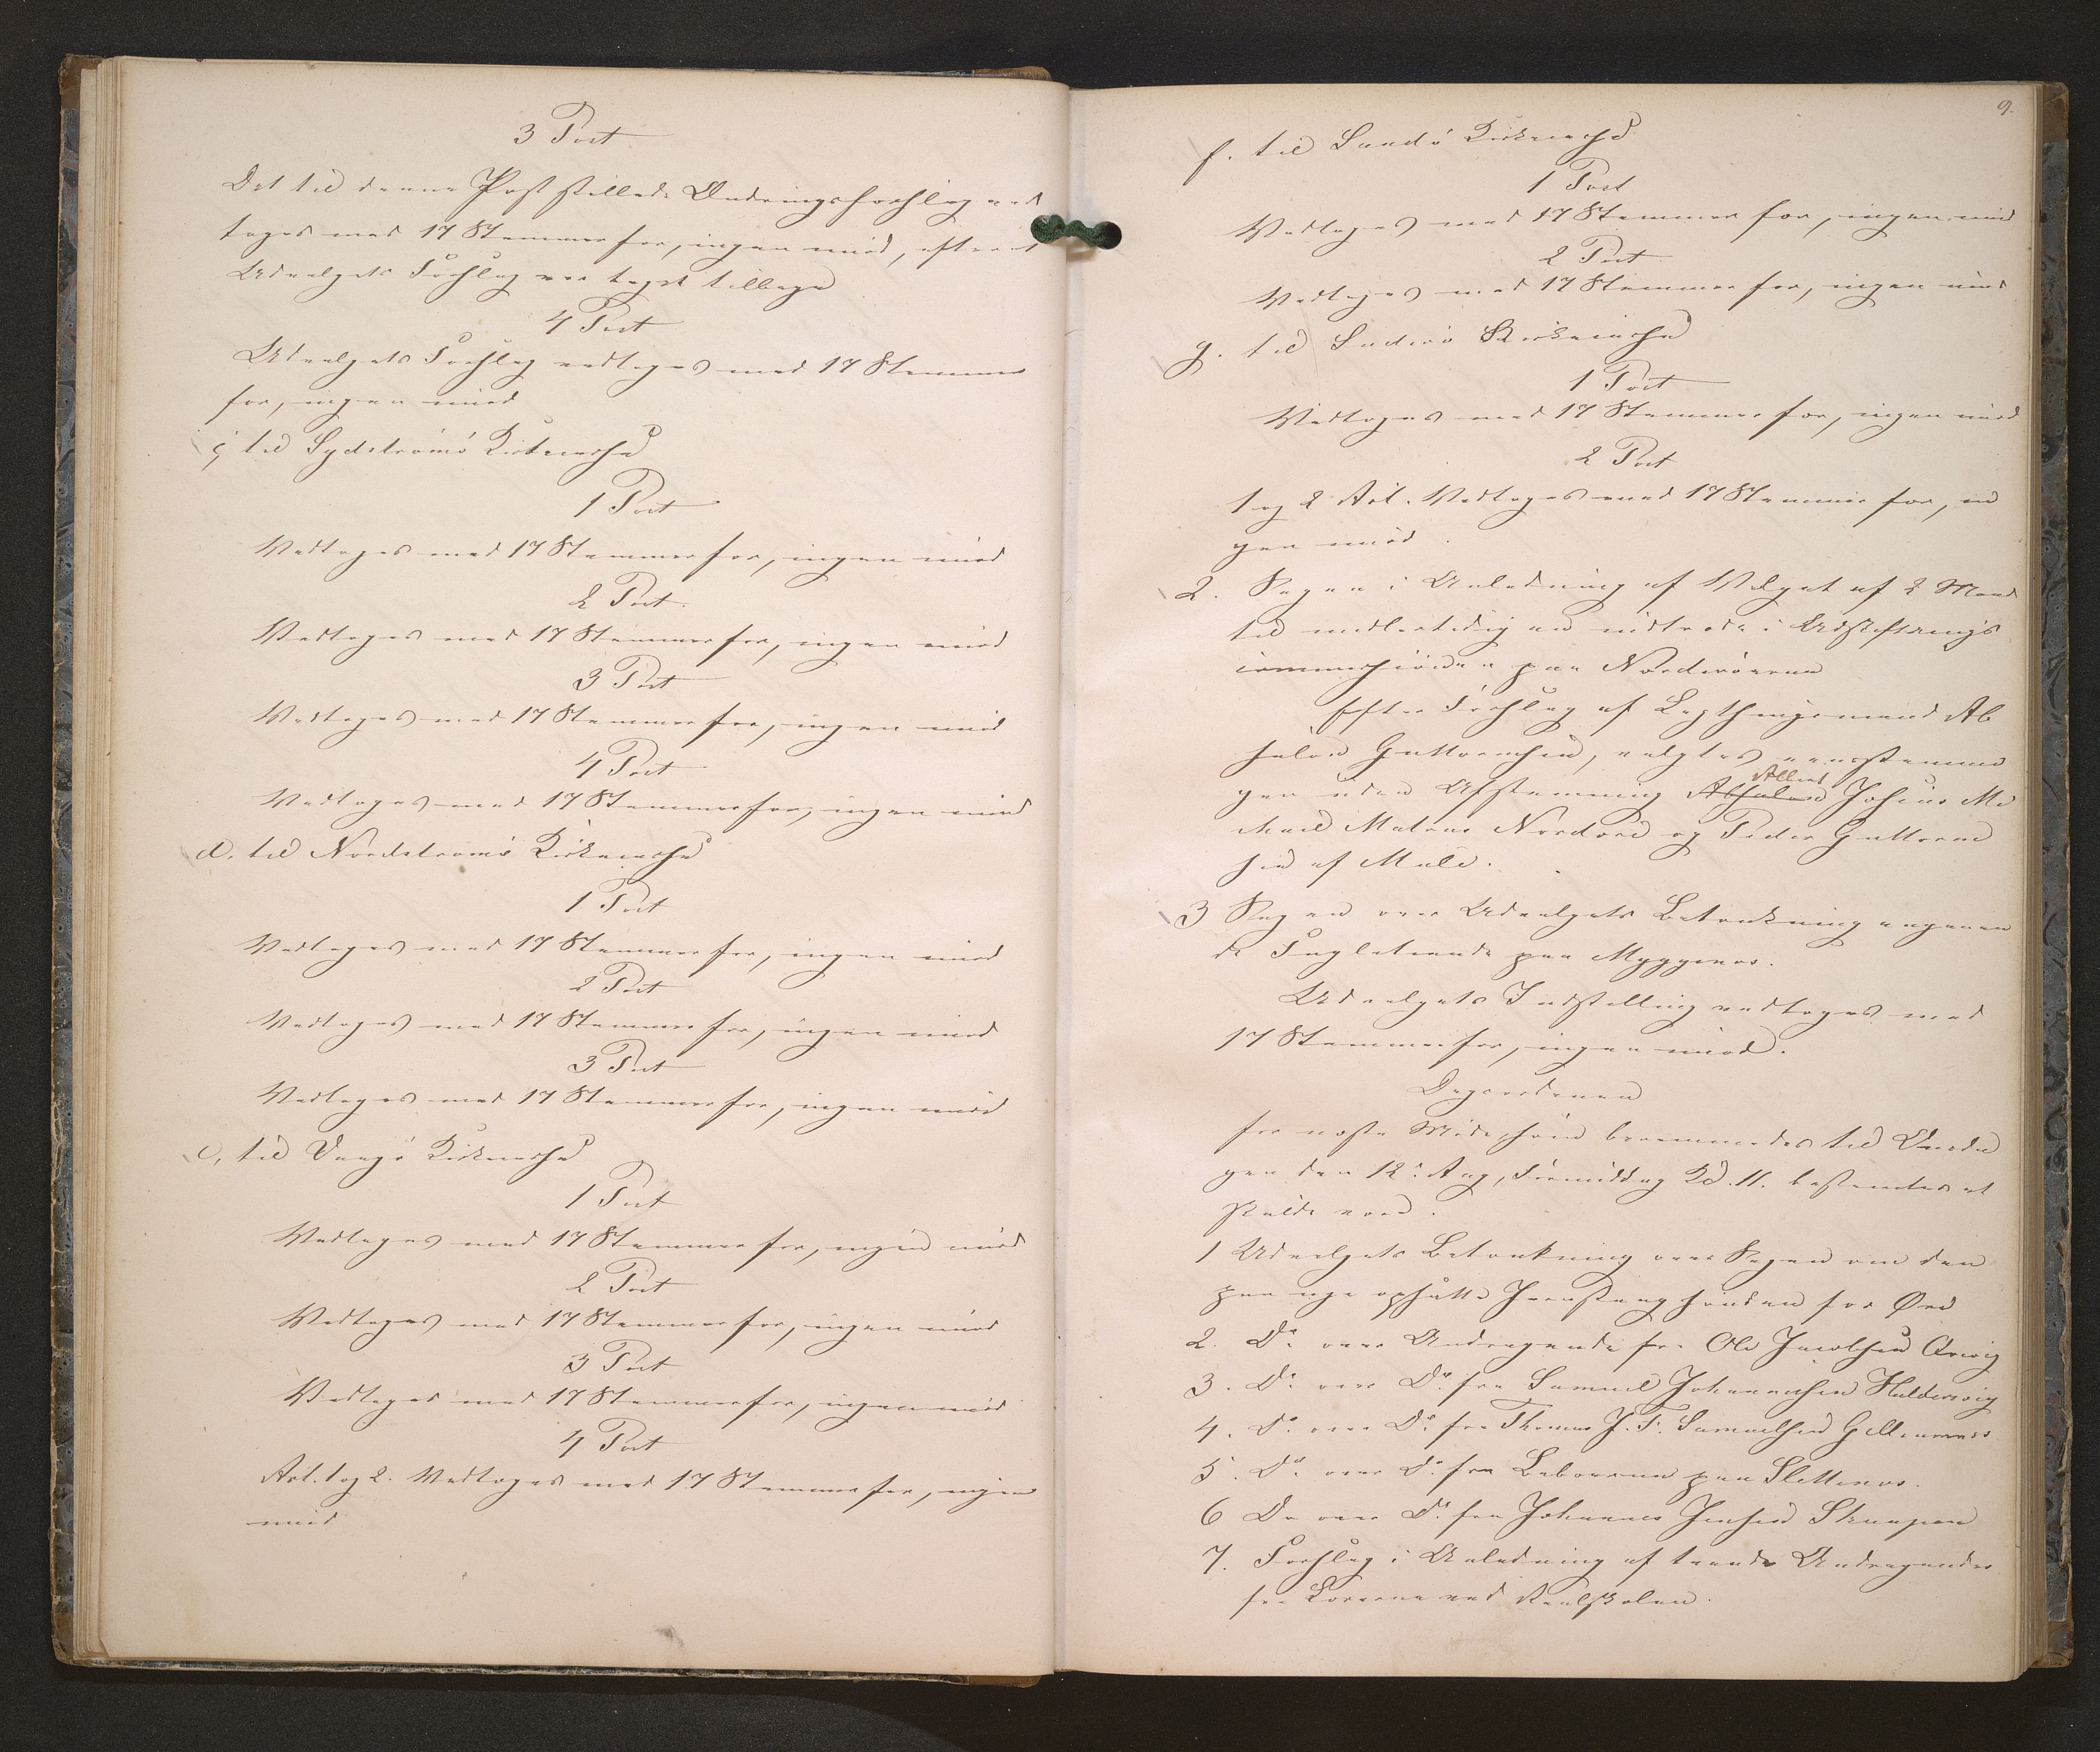 3 Post
Det til denne Post stillede Ændringsforslag ved
toges med 17 Stemmer for, ingen mod, efter at
Udvalgets Forslag var taget tilbage
4 Post
Udvalgets Forslag vedtoges med 17 Stemmer
for, ingen mod
c, til Sydstrømø
1 Post
Vedtoges med 17 Stemmer for, ingen mod
2 Post.
Vedtoges med 17 Stemmer for, ingen mod
3 Post
Vedtoges med 17 Stemmer for, ingen mod
4 Post
Vedtoges med 17 Stemmer for, ingen mod
d. til Nordstrømø
1 Post
Vedtoges med 17 Stemmer for, ingen mod
2 Post
Vedtoges med 17 Stemmer for, ingen mod
3 Post
Vedtoges med 17 Stemmer for, ingen mod
e, til Vaagø
1 Post
Vedtoges med 17 Stemmer for, ingen mod
2 Post
Vedtoges med 17 Stemmer for, ingen mod
3 Post
Vedtoges med 17 Stemmer for, ingen mod
4 Post
Art. 1 og 2. Vedtoges med 17 Stemmer for, ingen
mod
9.
f. til Sandø
1 Post
Vedtoges med 17 Stemmer for, ingen mod
2 Post
Vedtoges med 17 Stemmer for, ingen mod
g. til Suderø
1 Post
Vedtoges med 17 Stemmer for, ingen mod
2 Post
1 og 2 Art. Vedtoges med 17 Stemmer for, in
gen mod.
2. Sagen i Anledning af Valget af 2 Mænd
til midlertidig at indtræde i Udskiftnings
commissionen paa Norderøerne
Efter Forslag af Lagthingsmand Ab
salon Guttormsen, valgtes eenstemmi
gen uden Afstemning Absalon Johans Mi
chael Matras Nordøre og Peder Guttorm
sen af Mule.
3 Sagen over Udvalgets Betænkning angaaen
de Fugletiende paa Myggenæs.
Udvalgets Indstilling vedtoges med
17 Stemmer for, ingen mod.
Dagsordenen
for næste Møde, som berammedes til Onsda
gen den 12te Aug, Formiddag Kl. 11. bestemtes at
skulde være.
1 Udvalgets Betænkning over Sagen om den
paa nye opsatte for Øre
2. Do over Andragende fra Ole Jacobsen Qvivig
3. Do over Do fra Samuel Johannesen Haldersvig
4. Do over Do fra Thomas J. F. Samuelsen Gellenæs
5. Do over Do fra Beboerne paa Slettenæs.
6 Do over Do fra Johannes Jensen Skaapen
7. Forslag i Anledning af tvende Andragender
fra Lærerne ved Realskolen.